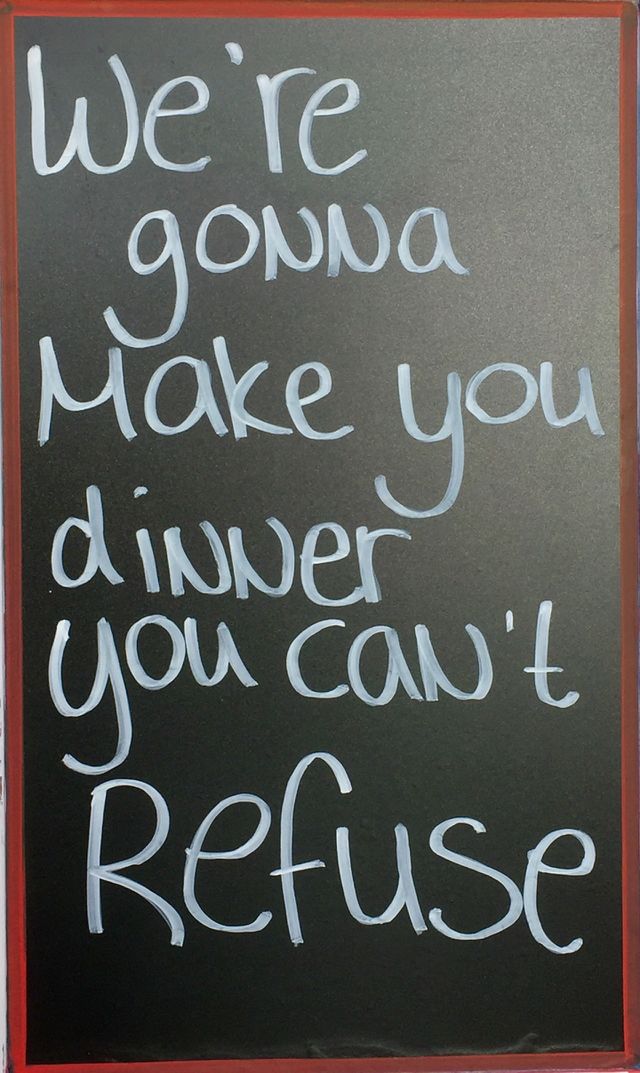 We're
gonna
Make you
dinner
you can't
Refuse